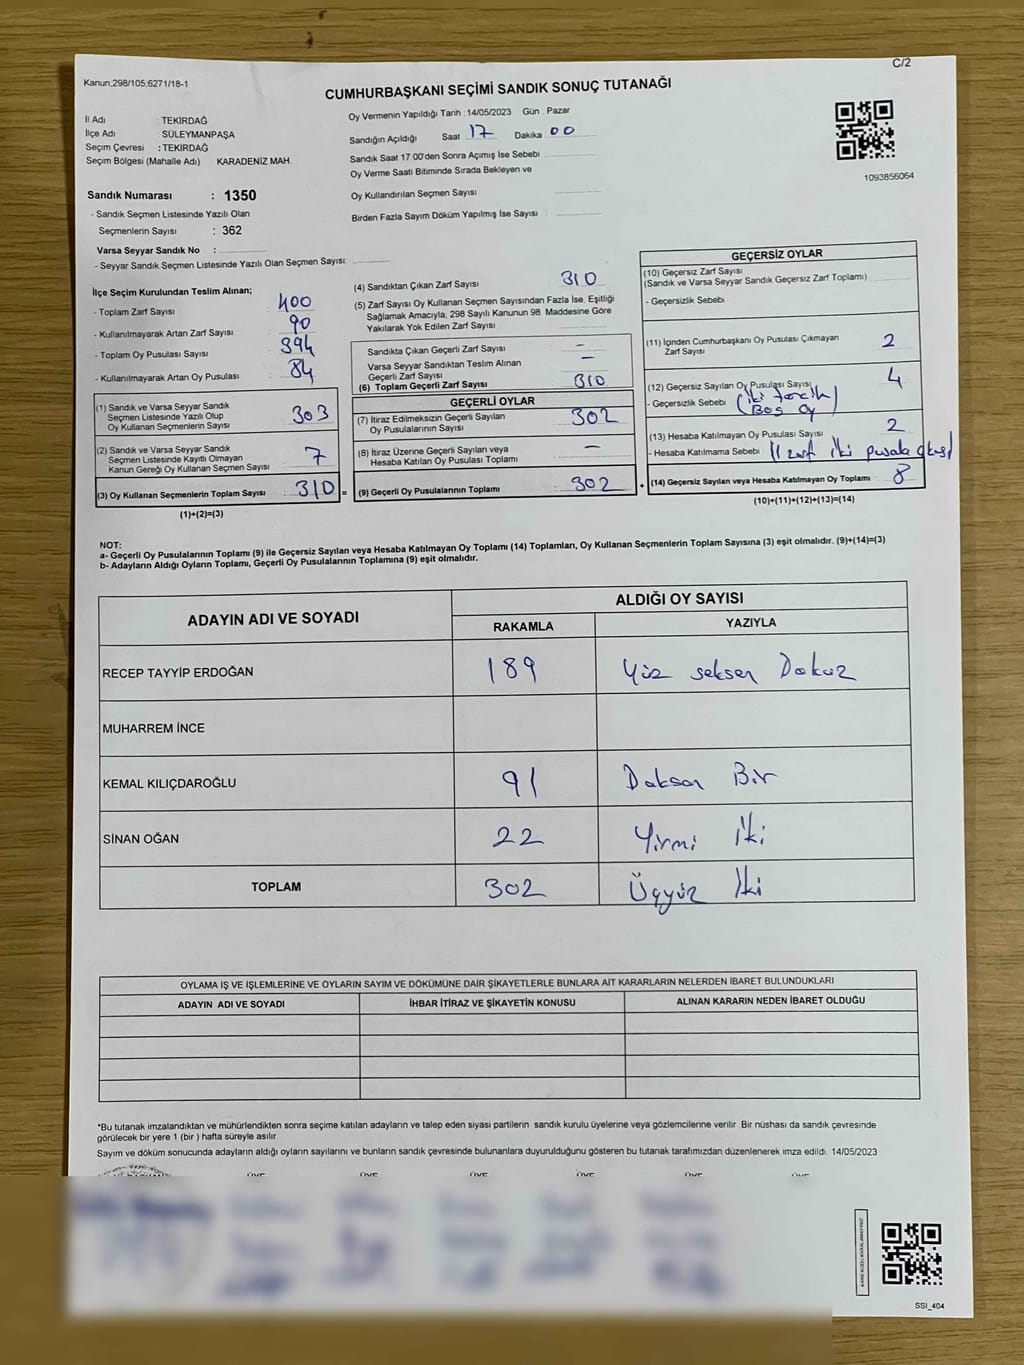 Kanun;298/105;6271/18-1
C/2
CUMHURBAŞKANI SEÇİMİ SANDIK SONUÇ TUTANAĞI
İl Adı : TEKİRDAĞ
İlçe Adı : SÜLEYMANPAŞA
Seçim Çevresi : TEKİRDAĞ
Seçim Bölgesi (Mahalle Adı) : KARADENİZ MAH.
Sandık Numarası : 1350
- Sandık Seçmen Listesinde Yazılı Olan
Seçmenlerin Sayısı : 362
Varsa Seyyar Sandık No :
- Seyyar Sandık Seçmen Listesinde Yazılı Olan Seçmen Sayısı:
Oy Vermenin Yapıldığı Tarih : 14/05/2023 Gün : Pazar
Sandığın Açıldığı Saat 17 Dakika 00
Sandık Saat 17 00'den Sonra Açımış İse Sebebi
Oy Verme Saati Bitiminde Sırada Bekleyen ve
Oy Kullandırılan Seçmen Sayısı
Birden Fazla Sayım Döküm Yapılmış İse Sayısı :
1093856064
İlçe Seçim Kurulundan Teslim Alınan;
- Toplam Zarf Sayısı : 400
- Kullanılmayarak Artan Zarf Sayısı : 90
- Toplam Oy Pusulası Sayısı : 394
- Kullanılmayarak Artan Oy Pusulası : 84
(1) Sandık ve Varsa Seyyar Sandık
Seçmen Listesinde Yazılı Olup
Oy Kullanan Seçmenlerin Sayısı 303
(2) Sandık ve Varsa Seyyar Sandık
Seçmen Listesinde Kayıtlı Olmayan
Kanun Gereği Oy Kullanan Seçmen Sayısı 7
(3) Oy Kullanan Seçmenlerin Toplam Sayısı : 310 =
(1)+(2)=(3)
(4) Sandıktan Çıkan Zarf Sayısı 310
(5) Zarf Sayısı Oy Kullanan Seçmen Sayısından Fazla İse, Eşitliği
Sağlamak Amacıyla, 298 Sayılı Kanunun 98. Maddesine Göre
Yakılarak Yok Edilen Zarf Sayısı
Sandıkta Çıkan Geçerli Zarf Sayısı -
Varsa Seyyar Sandıktan Teslim Alınan
Geçerli Zarf Sayısı -
(6) Toplam Geçerli Zarf Sayısı 310
GEÇERLİ OYLAR
(7) İtiraz Edilmeksizin Geçerli Sayılan
Oy Pusulalarının Sayısı 302
(8) İtiraz Üzerine Geçerli Sayılan veya
Hesaba Katılan Oy Pusulası Toplamı -
(9) Geçerli Oy Pusulalarının Toplamı 302 +
GEÇERSİZ OYLAR
(10) Geçersiz Zarf Sayısı
(Sandık ve Varsa Seyyar Sandık Geçersiz Zarf Toplamı)
- Geçersizlik Sebebi
(11) İçinden Cumhurbaşkanı Oy Pusulası Çıkmayan
Zarf Sayısı 2
(12) Geçersiz Sayılan Oy Pusulası Sayısı 4
- Geçersizlik Sebebi (iki tercih
Boş oy)
(13) Hesaba Katılmayan Oy Pusulası Sayısı 2
- Hesaba Katılmama Sebebi zarf iki pusula
(14) Geçersiz Sayılan veya Hesaba Katılmayan Oy Toplamı 8
(10)+(11)+(12)+(13)=(14)
NOT:
a- Geçerli Oy Pusulalarının Toplamı (9) ile Geçersiz Sayılan veya Hesaba Katılmayan Oy Toplamı (14) Toplamları, Oy Kullanan Seçmenlerin Toplam Sayısına (3) eşit olmalıdır. (9)+(14)=(3)
b- Adayların Aldığı Oyların Toplamı, Geçerli Oy Pusulalarının Toplamına (9) eşit olmalıdır.
ADAYIN ADI VE SOYADI ALDIĞI OY SAYISI
RAKAMLA YAZIYLA
RECEP TAYYİP ERDOĞAN 189 Yüz seksen Dokuz
MUHARREM İNCE
KEMAL KILIÇDAROĞLU 91 Doksan Bir
SİNAN OĞAN 22 Yirmi iki
TOPLAM 302 Üçyüz İki
OYLAMA İŞ VE İŞLEMLERİNE VE OYLARIN SAYIM VE DÖKÜMÜNE DAİR ŞİKAYETLERLE BUNLARA AİT KARARLARIN NELERDEN İBARET BULUNDUKLARI
ADAYIN ADI VE SOYADI İHBAR İTİRAZ VE ŞİKAYETİN KONUSU ALINAN KARARIN NEDEN İBARET OLDUĞU
*Bu tutanak imzalandıktan ve mühürlendikten sonra seçime katılan adayların ve talep eden siyasi partilerin sandık kurulu üyelerine veya gözlemcilerine verilir. Bir nüshası da sandık çevresinde
görülecek bir yere 1 (bir ) hafta süreyle asılır.
Sayım ve döküm sonucunda adayların aldığı oyların sayılarını ve bunların sandık çevresinde bulunanlara duyurulduğunu gösteren bu tutanak tarafımızdan düzenlenerek imza edildi. 14/05/2023
ÜYE ÜYE ÜYE ÜYE ÜYE ÜYE
SSI_404